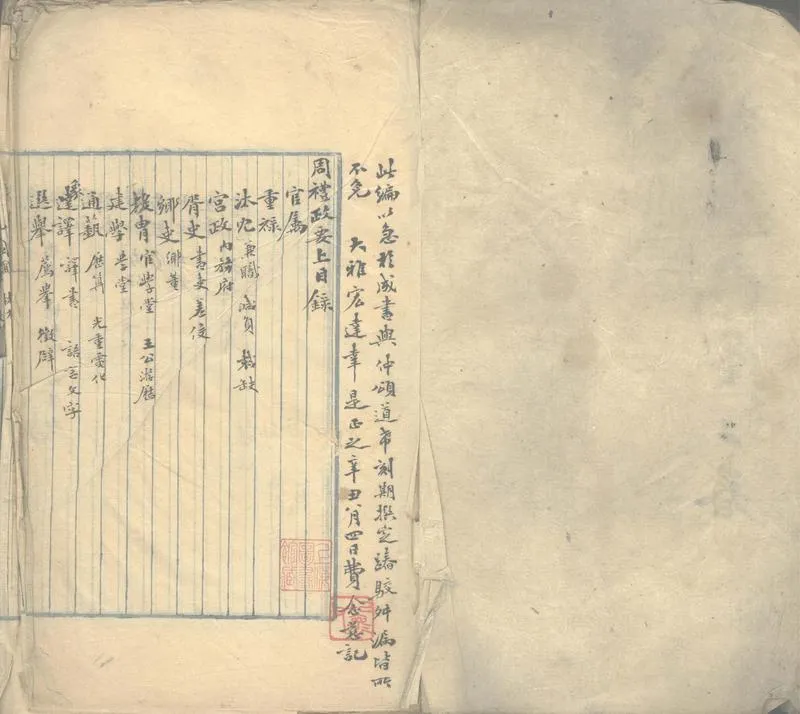 此編以急於成書與仲頌道希刻期撰定踳駁舛漏皆所
不免 大雅宏達幸是正之辛丑八月四日費念慈記
周禮政要上目錄
官屬
重祿
汰冗 兼職 減員 裁缺
宮政 內務府
胥吏 書吏 差役
鄉吏 鄉董
教胄 官學堂 王公游歷
建學 學堂
通藝 曆算 光重電化
通譯 譯書 語言文字
選舉 薦舉 徵辟